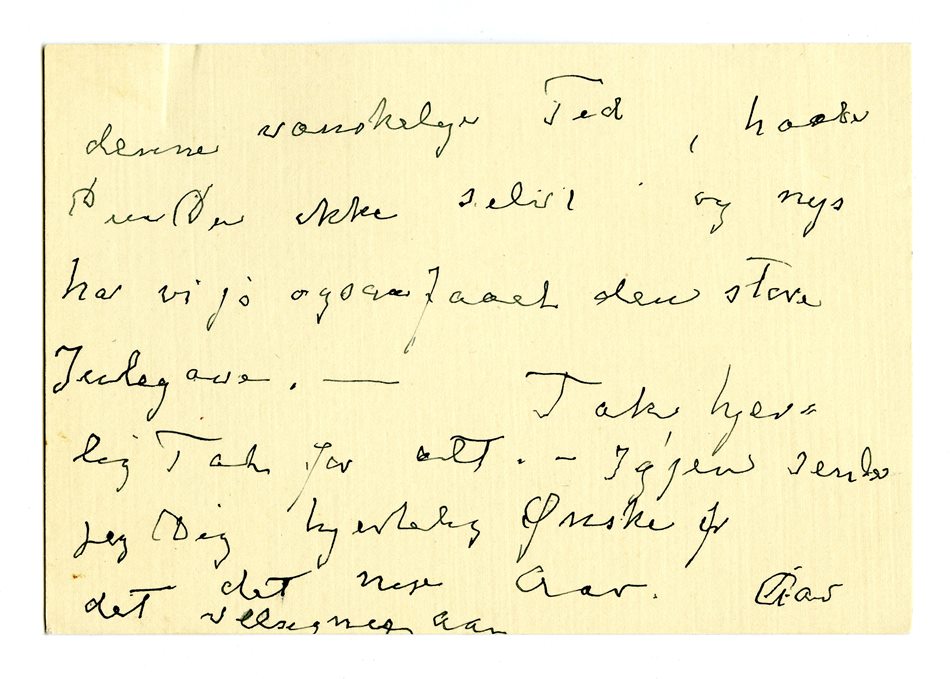 denne vanskelige Tid, haaber
Du ikke selv og nys
har vi jo ogsaa faaet den store
Julegave. —
Tak, hjer=
lig Tak for alt. — Igjen sender
jeg Dig hjertelig Ønske for
det nye Aar.
det velsigne